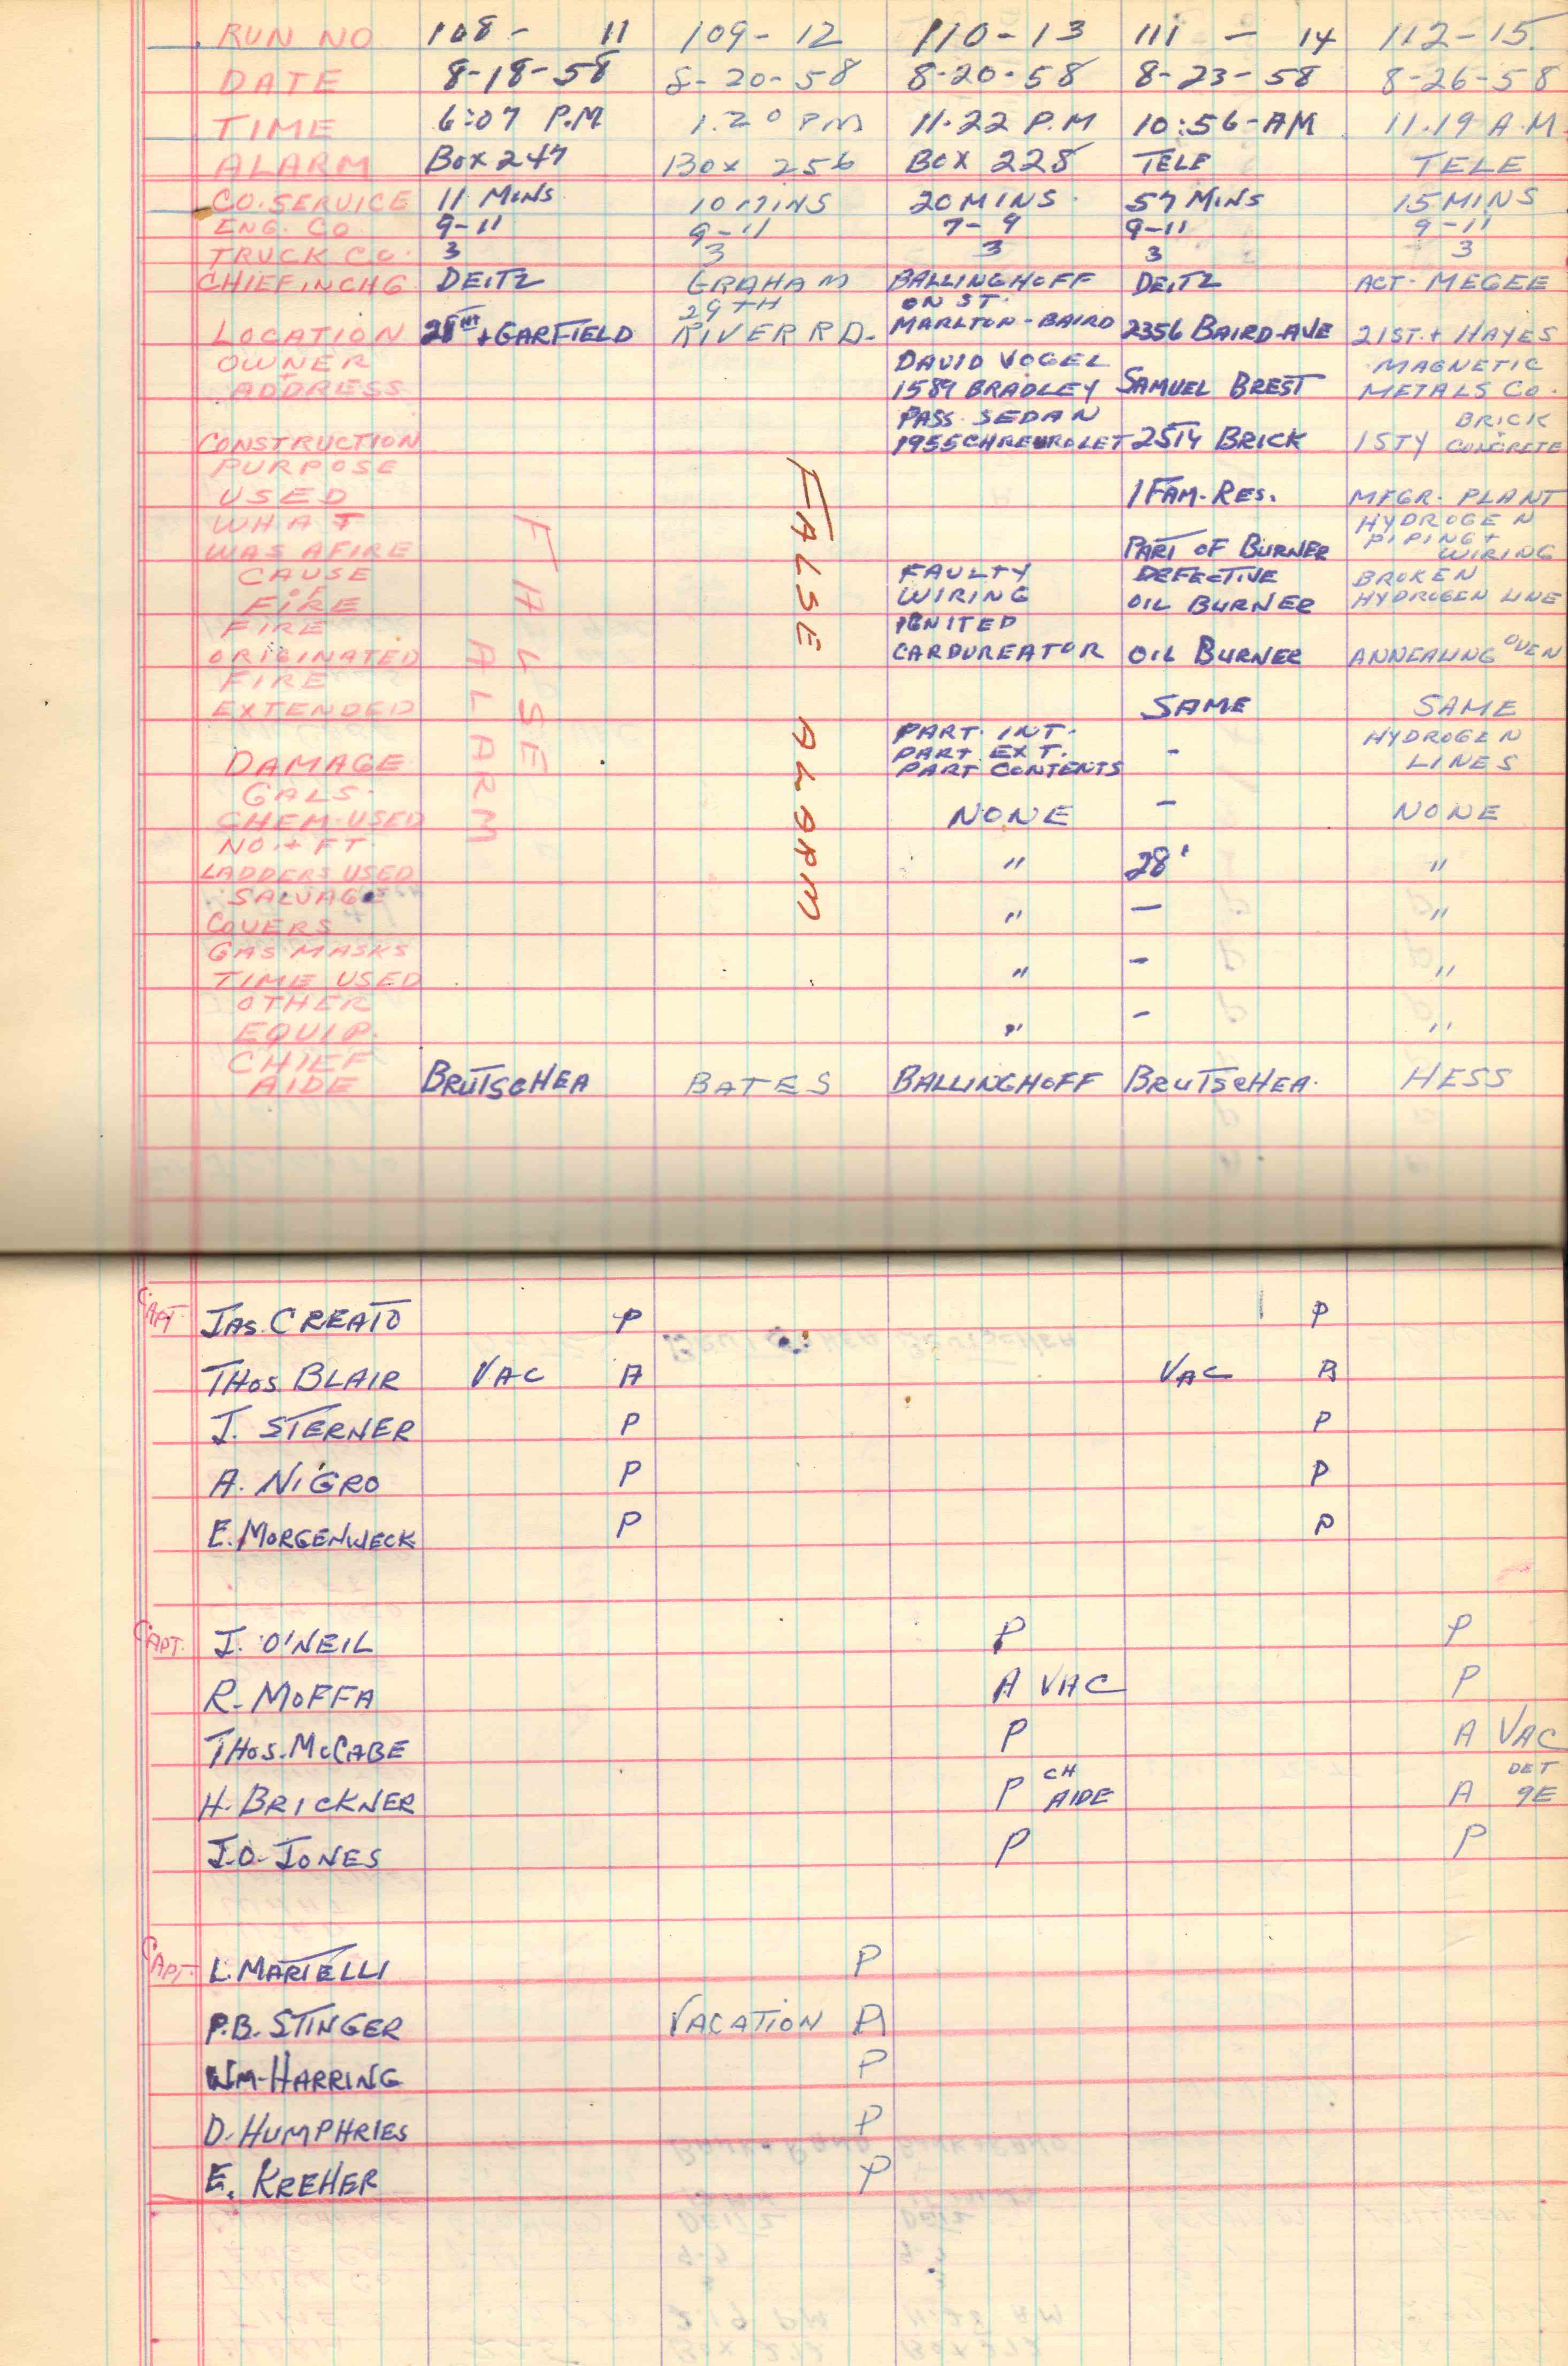 RUN NO 108 - 11 109 - 12 110 - 13 111 - 14 112 - 15
DATE 8-18-58 8-20-58 8-20-58 8-23-58 8-26-58
TIME 6:07 P.M 1.20 PM 11.22 P.M 10:56-AM 11.19 A.M
ALARM BOX 247 BOX 256 BOX 228 TELE TELE
CO. SERVICE 11 MINS 10 MINS 20 MINS. 57 MINS 15 MINS
ENG. CO 9-11 9-11 7-9 9-11 9-11
TRUCK CO. 3 3 3 3 3
CHIEF IN CHG DEITZ GRAHAM BALLINGHOFF DEITZ ACT. MEGEE
29TH ON ST.
LOCATION 28TH + GARFIELD RIVER RD. MARLTON-BAIRD 2356 BAIRD-AVE 21ST. + HAYES
OWNER DAVID VOGEL MAGNETIC
+ ADDRESS 1589 BRADLEY SAMUEL BREST METALS CO.
PASS. SEDAN BRICK +
CONSTRUCTION 1955 CHREVROLET 2STY BRICK 1STY CONCRETE
PURPOSE
USED 1 FAM-RES. MFGR. PLANT
WHAT HYDROGEN
WAS AFIRE PART OF BURNER PIPING + WIRING
CAUSE FAULTY DEFECTIVE BROKEN
OF
FIRE WIRING OIL BURNER HYDROGEN LINE
FIRE IGNITED
ORIGINATED CARDUREATOR OIL BURNER ANNEALING OVEN
FIRE
EXTENDED SAME SAME
PART. INT. HYDROGEN
PART EXT.
DAMAGE PART CONTENTS - LINES
GALS.
CHEM-USED NONE - NONE
NO. + FT.
LADDERS USED " 28' "
SALVAGE
COVERS " - "
GAS MASKS
TIME USED " - "
OTHER
EQUIP. " - "
CHIEF
AIDE BRUTSCHEA BATES BALLINGHOFF BRUTSCHEA. HESS
FALSE
ALARM
FALSE ALARM
CAPT. JAS. CREATO P P
THOS. BLAIR VAC A VAC A
J. STERNER P P
A. NIGRO P P
E. MORGENWECK P P
CAPT. J. O'NEIL P P
R. MOFFA A VAC P
THOS. McCABE P A VAC
H. BRICKNER P CH AIDE A DET 9E
J.O. JONES P P
CAPT. L. MARTELLI P
P.B. STINGER VACATION A
WM-HARRING P
D. HUMPHRIES P
E. KREHER P